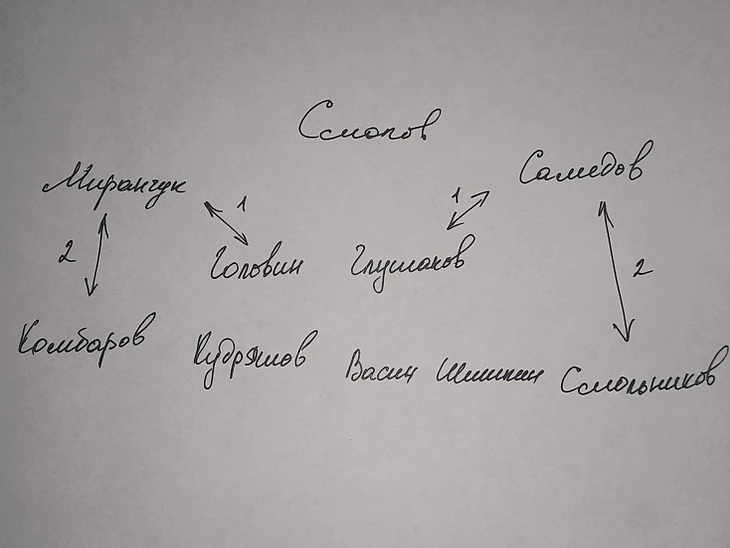 Смолов
Миранчук 1 1 Самедов
2 Головин Глушаков 2
Комбаров Кудряшов Васин Шишкин Смольников